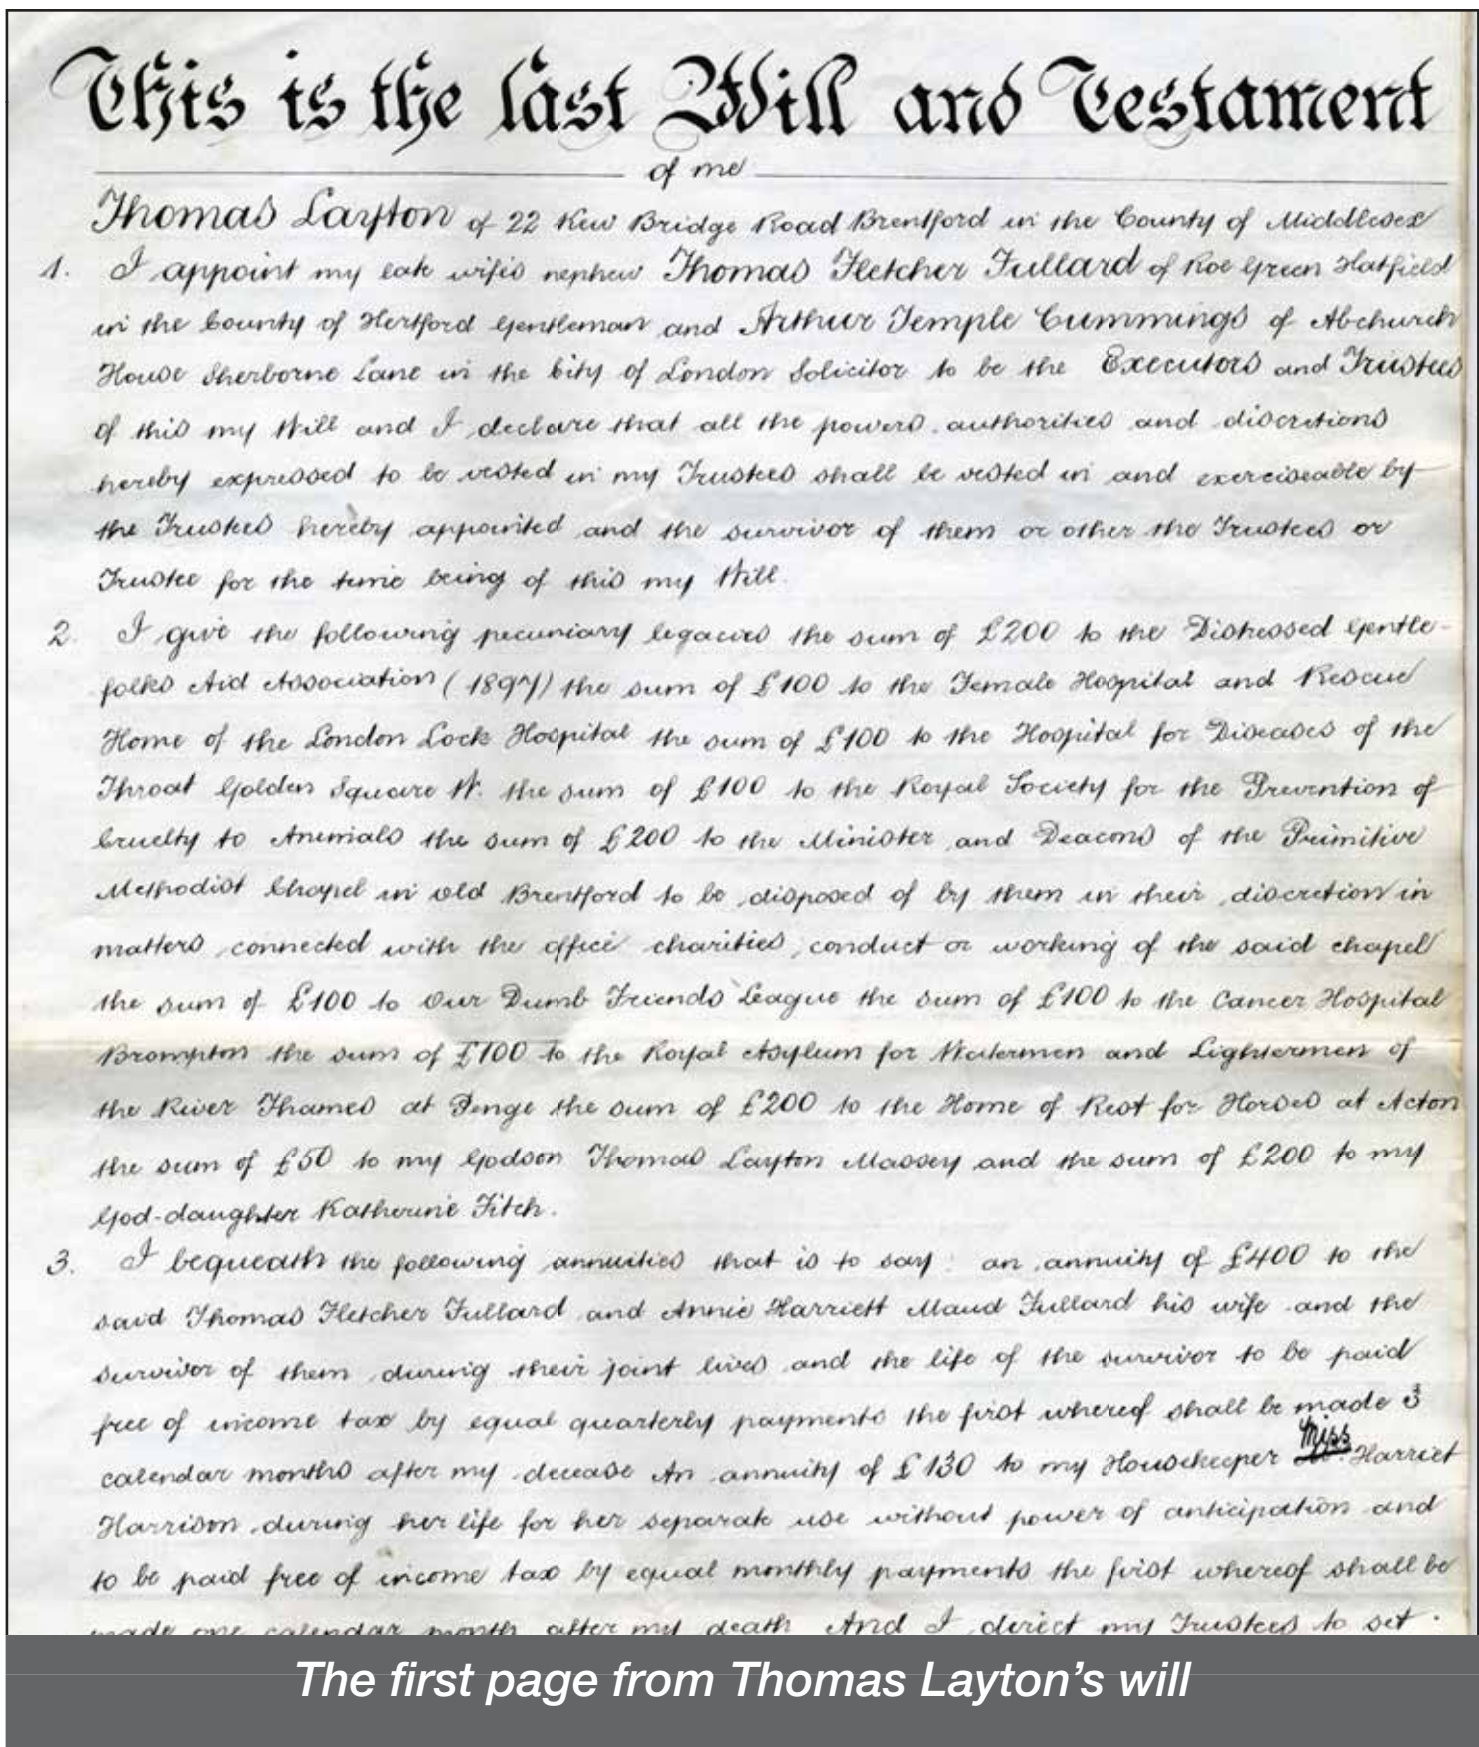 This is the last Will and Testament
of me
Thomas Layton of 22 Kew Bridge Road Brentford in the County of Middlesex
1. I appoint my late wife's nephew Thomas Fletcher Fullard of Roe Green Hatfield
in the County of Hertford Gentleman and Arthur Temple Cummings of Abchurch
House Sherborne Lane in the City of London Solicitor to be the Executors and Trustees
of this my Will and I declare that all the powers authorities and discretions
hereby expressed to be vested in my Trustees shall be vested in and exerciseable by
the Trustees hereby appointed and the survivor of them or other the Trustees or
Trustee for the time being of this my Will.
2. I give the following pecuniary legacies the sum of £200 to the Distressed Gentle-
folks Aid Association (1897) the sum of £100 to the Female Hospital and Rescue
Home of the London Lock Hospital the sum of £100 to the Hospital for Diseases of the
Throat Golden Square W. the sum of £100 to the Royal Society for the Prevention of
Cruelty to Animals the sum of £200 to the Minister and Deacons of the Primitive
Methodist Chapel in old Brentford to be disposed of by them in their discretion in
matters connected with the office charities conduct or working of the said chapel
the sum of £100 to Our Dumb Friends League the sum of £100 to the Cancer Hospital
Brompton the sum of £100 to the Royal Asylum for Watermen and Lightermen of
the River Thames at Penge the sum of £200 to the Home of Rest for Horses at Acton
the sum of £50 to my Godson Thomas Layton Massey and the sum of £200 to my
God-daughter Katherine Fitch.
3. I bequeath the following annuities that is to say: an annuity of £400 to the
said Thomas Fletcher Fullard and Annie Harriett Maud Fullard his wife and the
survivor of them during their joint lives and the life of the survivor to be paid
free of income tax by equal quarterly payments the first whereof shall be made 3
calendar months after my decease An annuity of £130 to my Housekeeper Miss Harriet
Harrison during her life for her separate use without power of anticipation and
to be paid free of income tax by equal monthly payments the first whereof shall be
made one calendar month after my death And I direct my Trustees to set
The first page from Thomas Layton's will